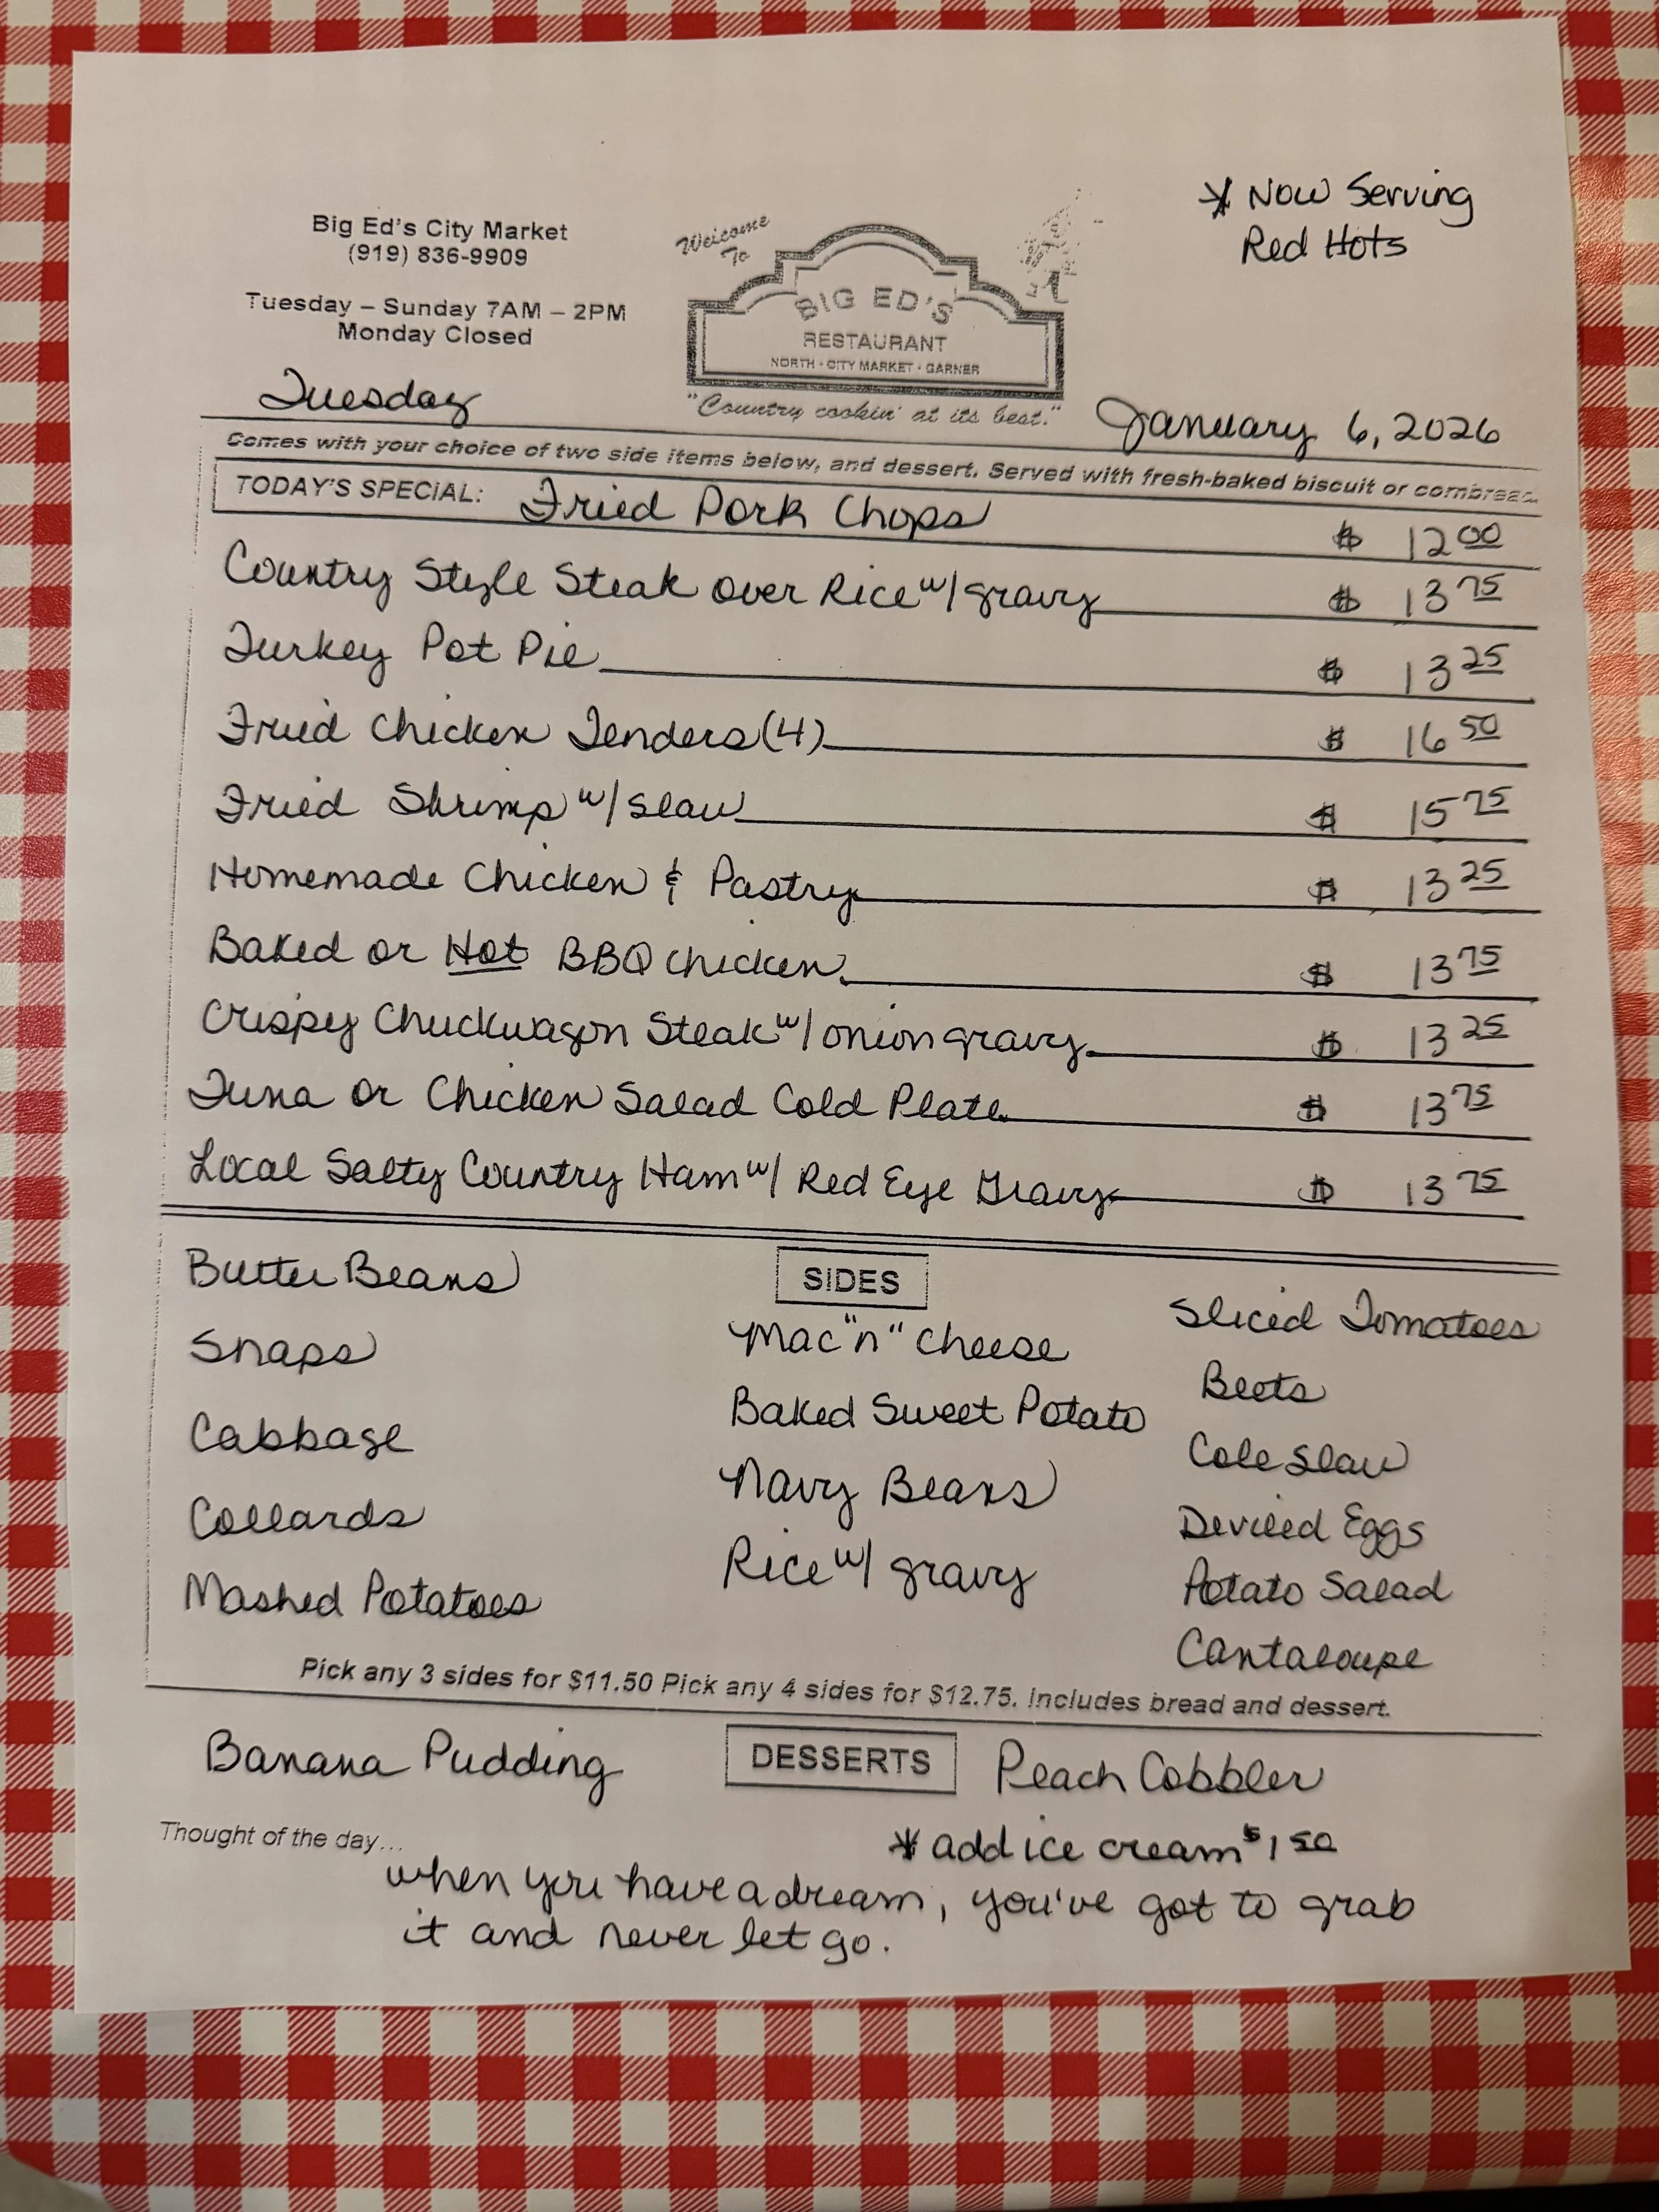 * Now Serving
Red Hots
Big Ed's City Market
(919) 836-9909
Tuesday – Sunday 7AM – 2PM
Monday Closed
Welcome
To
BIG ED'S
RESTAURANT
NORTH - CITY MARKET - GARNER
"Country cookin' at its best."
Tuesday
January 6, 2026
Comes with your choice of two side items below, and dessert. Served with fresh-baked biscuit or cornbread.
TODAY'S SPECIAL: Fried Pork Chops $ 12 00
Country Style Steak over Rice w/ gravy $ 13 75
Turkey Pot Pie $ 13 25
Fried Chicken Tenders (4) $ 16 50
Fried Shrimp w/ slaw $ 15 75
Homemade Chicken & Pastry $ 13 25
Baked or Hot BBQ chicken $ 13 75
Crispy Chuckwagon Steak w/ onion gravy $ 13 25
Tuna or Chicken Salad Cold Plate $ 13 75
Local Salty Country Ham w/ Red Eye Gravy $ 13 75
SIDES
Butter Beans
Snaps
Cabbage
Collards
Mashed Potatoes
Mac "n" Cheese
Baked Sweet Potato
Navy Beans
Rice w/ gravy
Sliced Tomatoes
Beets
Cole Slaw
Deviled Eggs
Potato Salad
Cantaloupe
Pick any 3 sides for $11.50 Pick any 4 sides for $12.75. Includes bread and dessert.
DESSERTS
Banana Pudding
Peach Cobbler
* add ice cream $1 50
Thought of the day...
when you have a dream, you've got to grab
it and never let go.